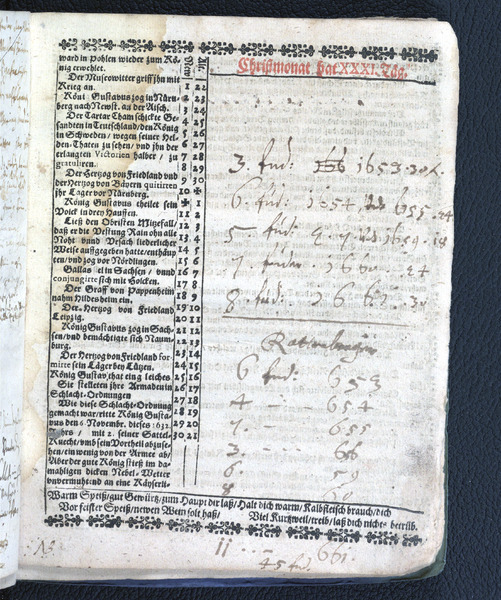 ward in Pohlen wieder zum Kö-
nig erwehlet.
Der Muscowitter griff ihn mit
Krieg an.
Köni Gustavus zog in Nürn-
berg nach Newst. an der Aisch.
Der Tartar Cham schickte Ge-
sandten in Teutschland/den König
in Schweden/ wegen seiner Hel-
den-Thaten zu sehen/ und ihn der
erlangten Victorien halber/ zu
gratuliren.
Der Hertzog von Friedland und
der Hertzog von Bäyern quitiren
ihr Lager vor Nürnberg.
König Gustavus theilet sein
Volck in drey Hauffen.
Ließ den Obristen Mitzefall/
daß er die Vestung Rain ohn alle
Noht unnd Ursach liederlicher
Weise auffgegeben hatte/enthäup-
ten/und zog vor Nördlingen.
Gallas fiel in Sachsen/ unnd
conjungirte sich mit Holcken.
Der Graff von Pappenheim
nahm Hildesheim ein.
Der Hertzog von Friedland
Leipzig.
König Gustavus zog in Sach-
sen/und bemächtigte sich Naum-
burg.
Der Hertzog von Friedland for-
mirte sein Läger bey Lützen.
König Gustav, that ein gleiches.
Sie stelleten ihre Armaden in
Schlacht-Ordnungen
Wie diese Schlacht-Ordnung
gemacht war/ritte König Gusta-
vus den 6 Novembr. dieses 1632.
Jahrs/ mit 2. seiner Sattel-
Knecht/umb sein Vortheil abzuse-
hen/ein wenig von der Armee ab/
Aber der gute König stieß im da-
mahligen dicken Nebel-Wetter
unvermuht: nd an eine Käyserli-
1 22
2 23
3 24
4 25
5 26
6 27
7 28
8 29
9 30
10
1
1 2
12 3
13 4
14 5
15 6
16 7
17 8
18 9
19 10
20 11
21 12
22 13
23 14
24 15
25 16
26 17
27 18
28 19
29 20
30 21
Christmonat hat XXXI. Tag.
3. fud: 1653
6. fud: 1654 655
5 fud: 1659
1660
8. fud: 1662
6 fud: 653
4 654
655
3. 66
6. 59
Warm Speiß/gut Gewürtz/zum Haupt der laß/ Halt dich warm/ Kalbfleisch brauch/dich
Vor feister Speiß/newen Wein solt haß/ Viel Kurtzweil/treib/ laß dich nichts betrüb.
11 661
45 fud.